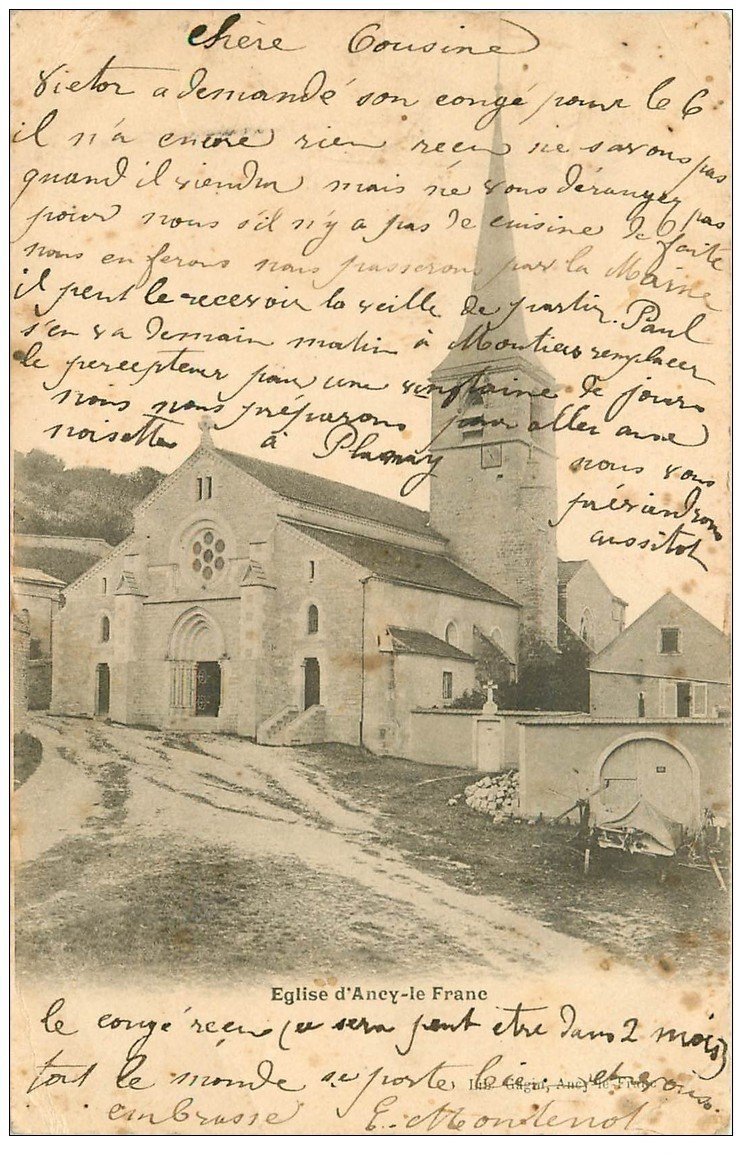 chère Cousine
Victor a demandé son congé pour le 6
il n'a encore rien reçu ne savons pas
quand il viendra mais ne vous dérangez pas
pour nous s'il n'y a pas de cuisine de faite
nous en ferons nous passerons par la Marne
il peut le recevoir la veille de partir. Paul
s'en va demain matin à Moutiers remplacer
le percepteur pour une vingtaine de jours
nous nous préparons pour aller aux
noisettes à
nous vous
préviendrons
aussitot
Eglise d'Ancy-le Franc
le congé reçu (ce sera peut etre dans 2 mois)
tout le monde se porte bien
Imp. Ancy-le-Franc
embrasse E. Montenot